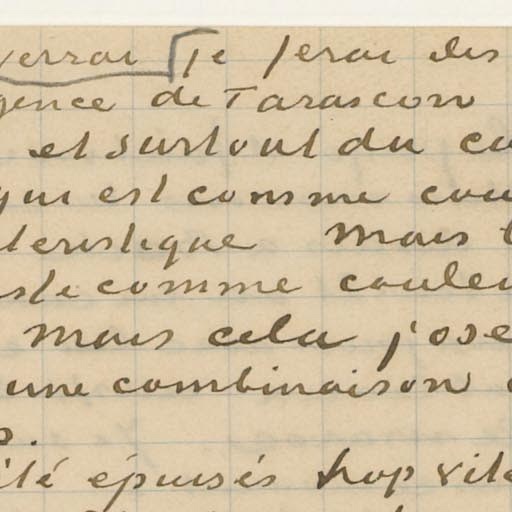 verrai je ferai des
gence de Tarascon
et surtout du co
qui est comme cou
teristique mais
ste comme couleu
mais cela j'ose
une combinaison
ité épuisés trop vite